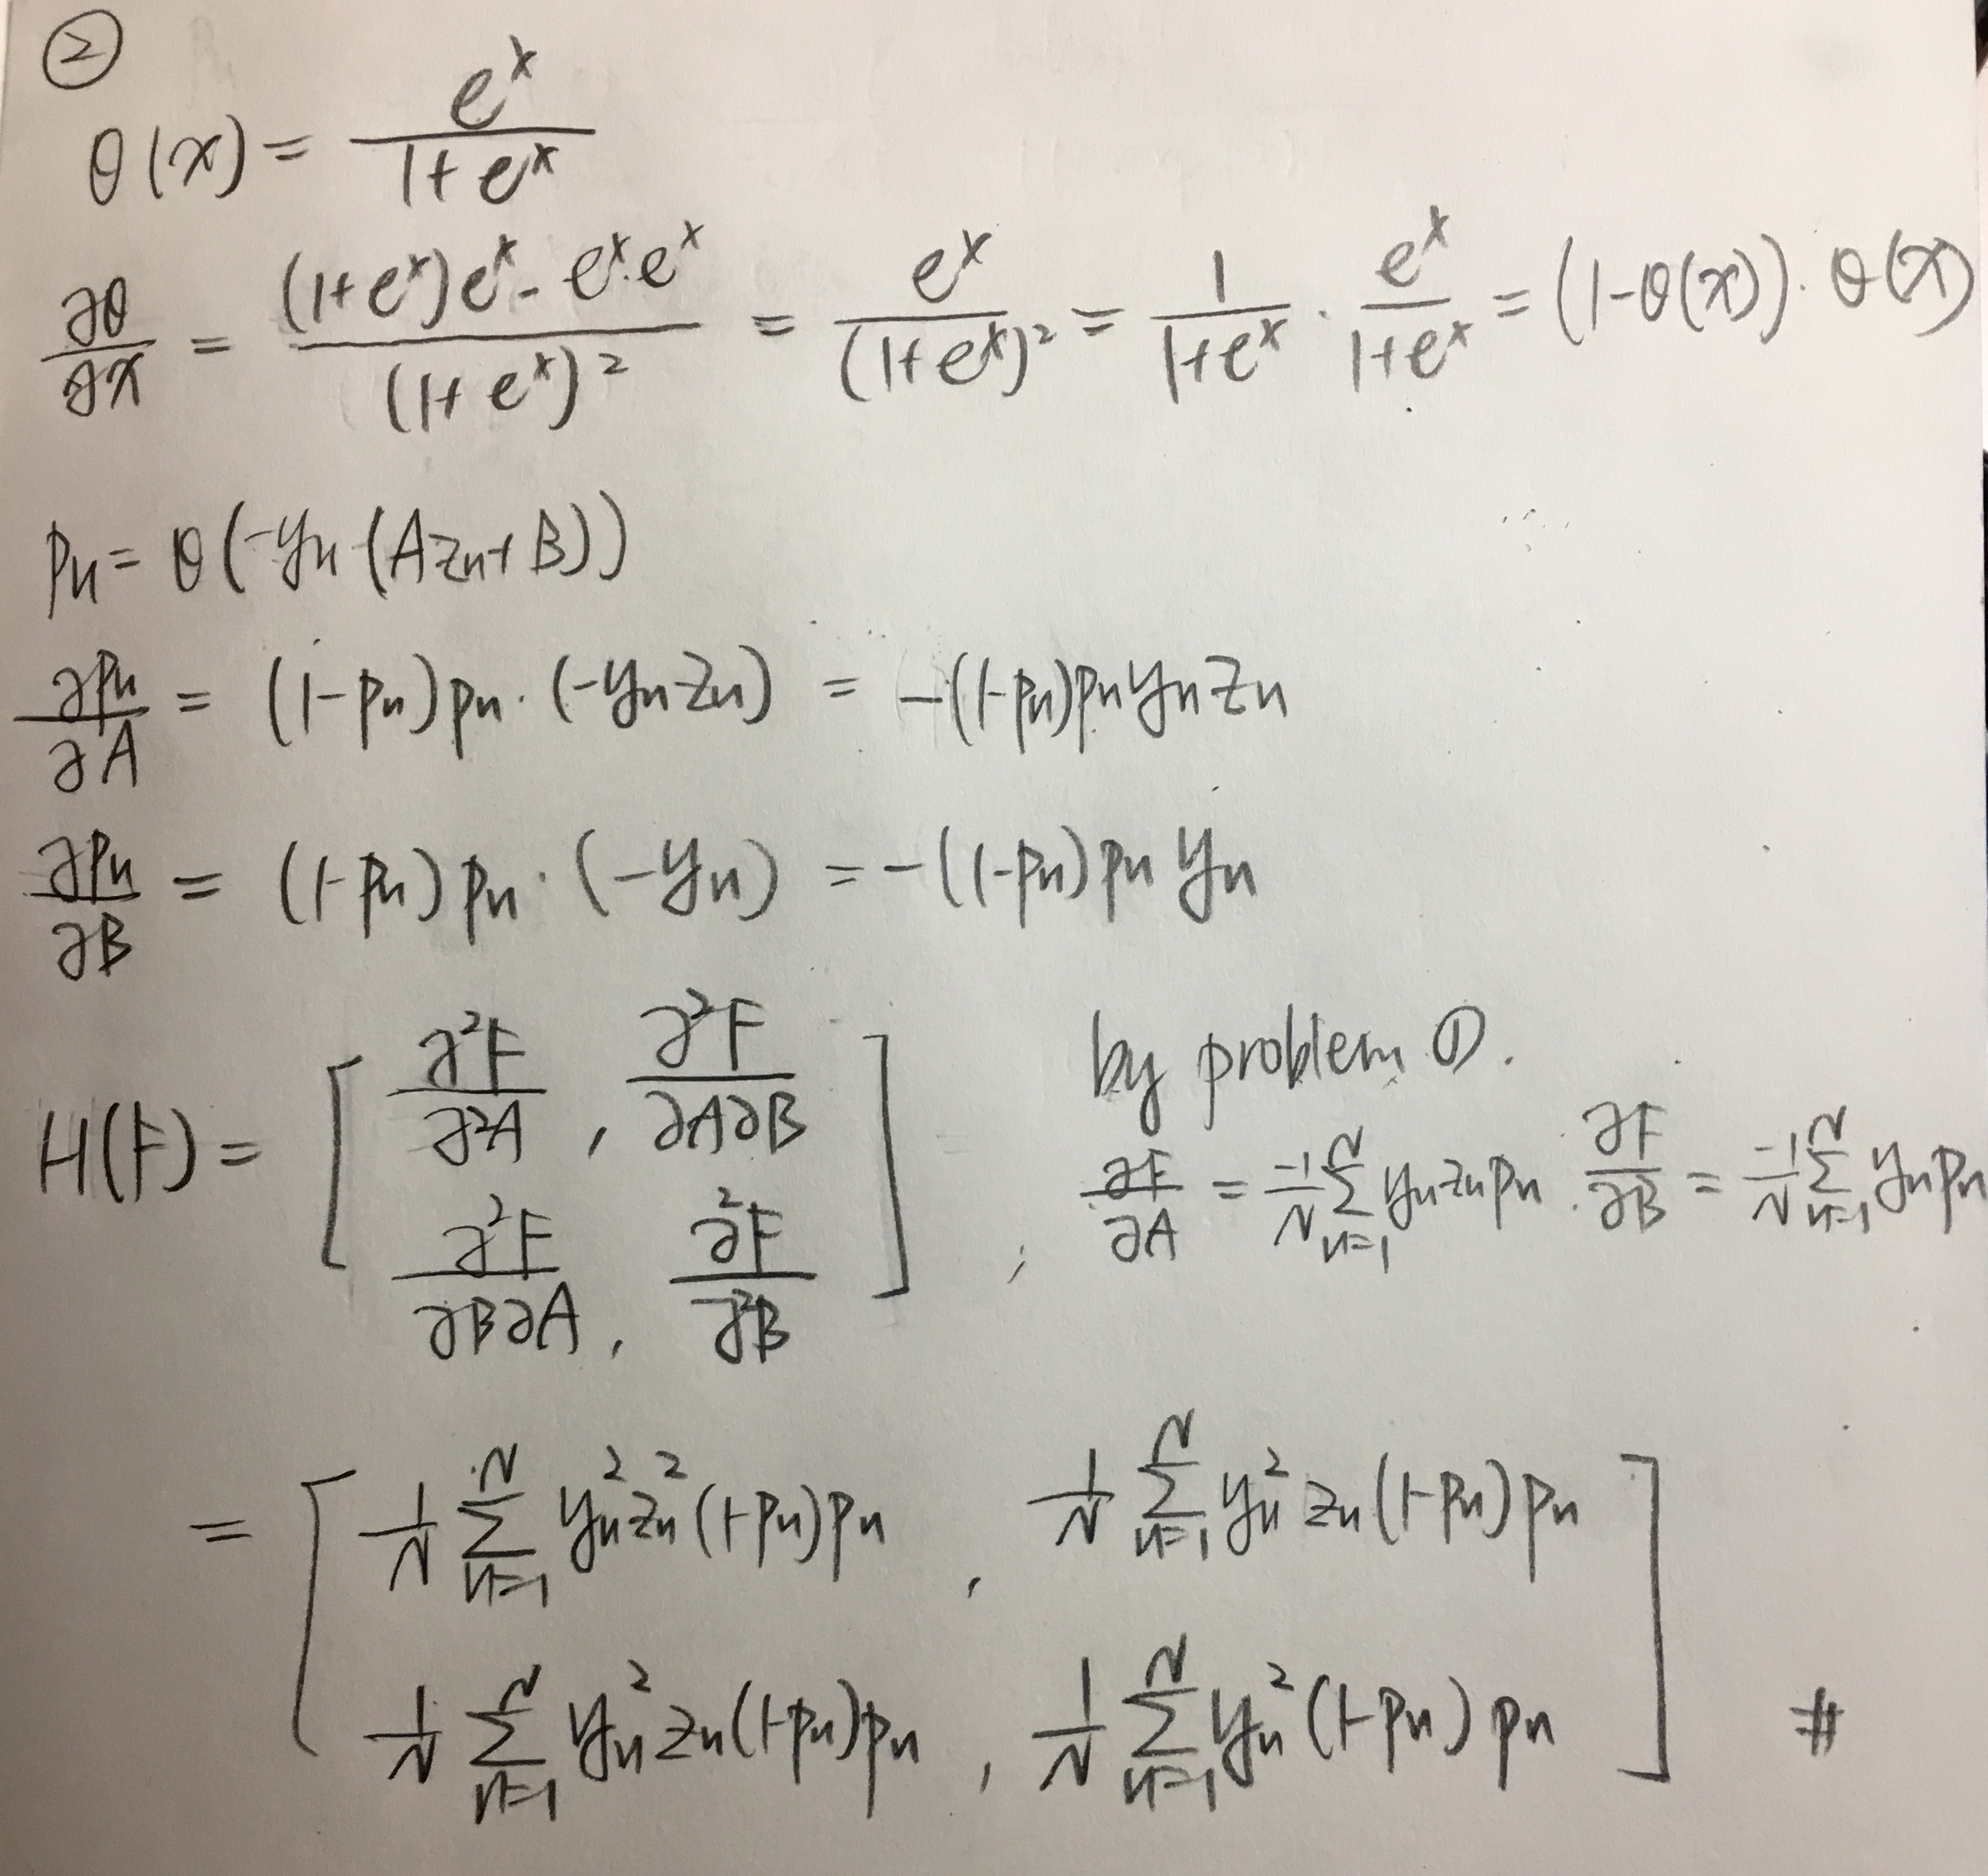 ②
θ(x) = e^x / (1+e^x)
∂θ/∂x = ((1+e^x)e^x - e^x·e^x) / (1+e^x)^2 = e^x / (1+e^x)^2 = 1/(1+e^x) · e^x/(1+e^x) = (1-θ(x))·θ(x)
pn = θ(-yn(Azn+B))
∂pn/∂A = (1-pn)pn·(-ynzn) = -(1-pn)pnynzn
∂pn/∂B = (1-pn)pn·(-yn) = -(1-pn)pnyn
by problem ①.
H(F) = [ ∂²F/∂²A , ∂²F/∂A∂B ; ∂²F/∂B∂A , ∂²F/∂²B ] , ∂F/∂A = -1/N Σ_{n=1}^{N} ynznpn . ∂F/∂B = -1/N Σ_{n=1}^{N} ynpn
= [ 1/N Σ_{n=1}^{N} yn²zn²(1-pn)pn , 1/N Σ_{n=1}^{N} yn²zn(1-pn)pn
1/N Σ_{n=1}^{N} yn²zn(1-pn)pn , 1/N Σ_{n=1}^{N} yn²(1-pn)pn ] #